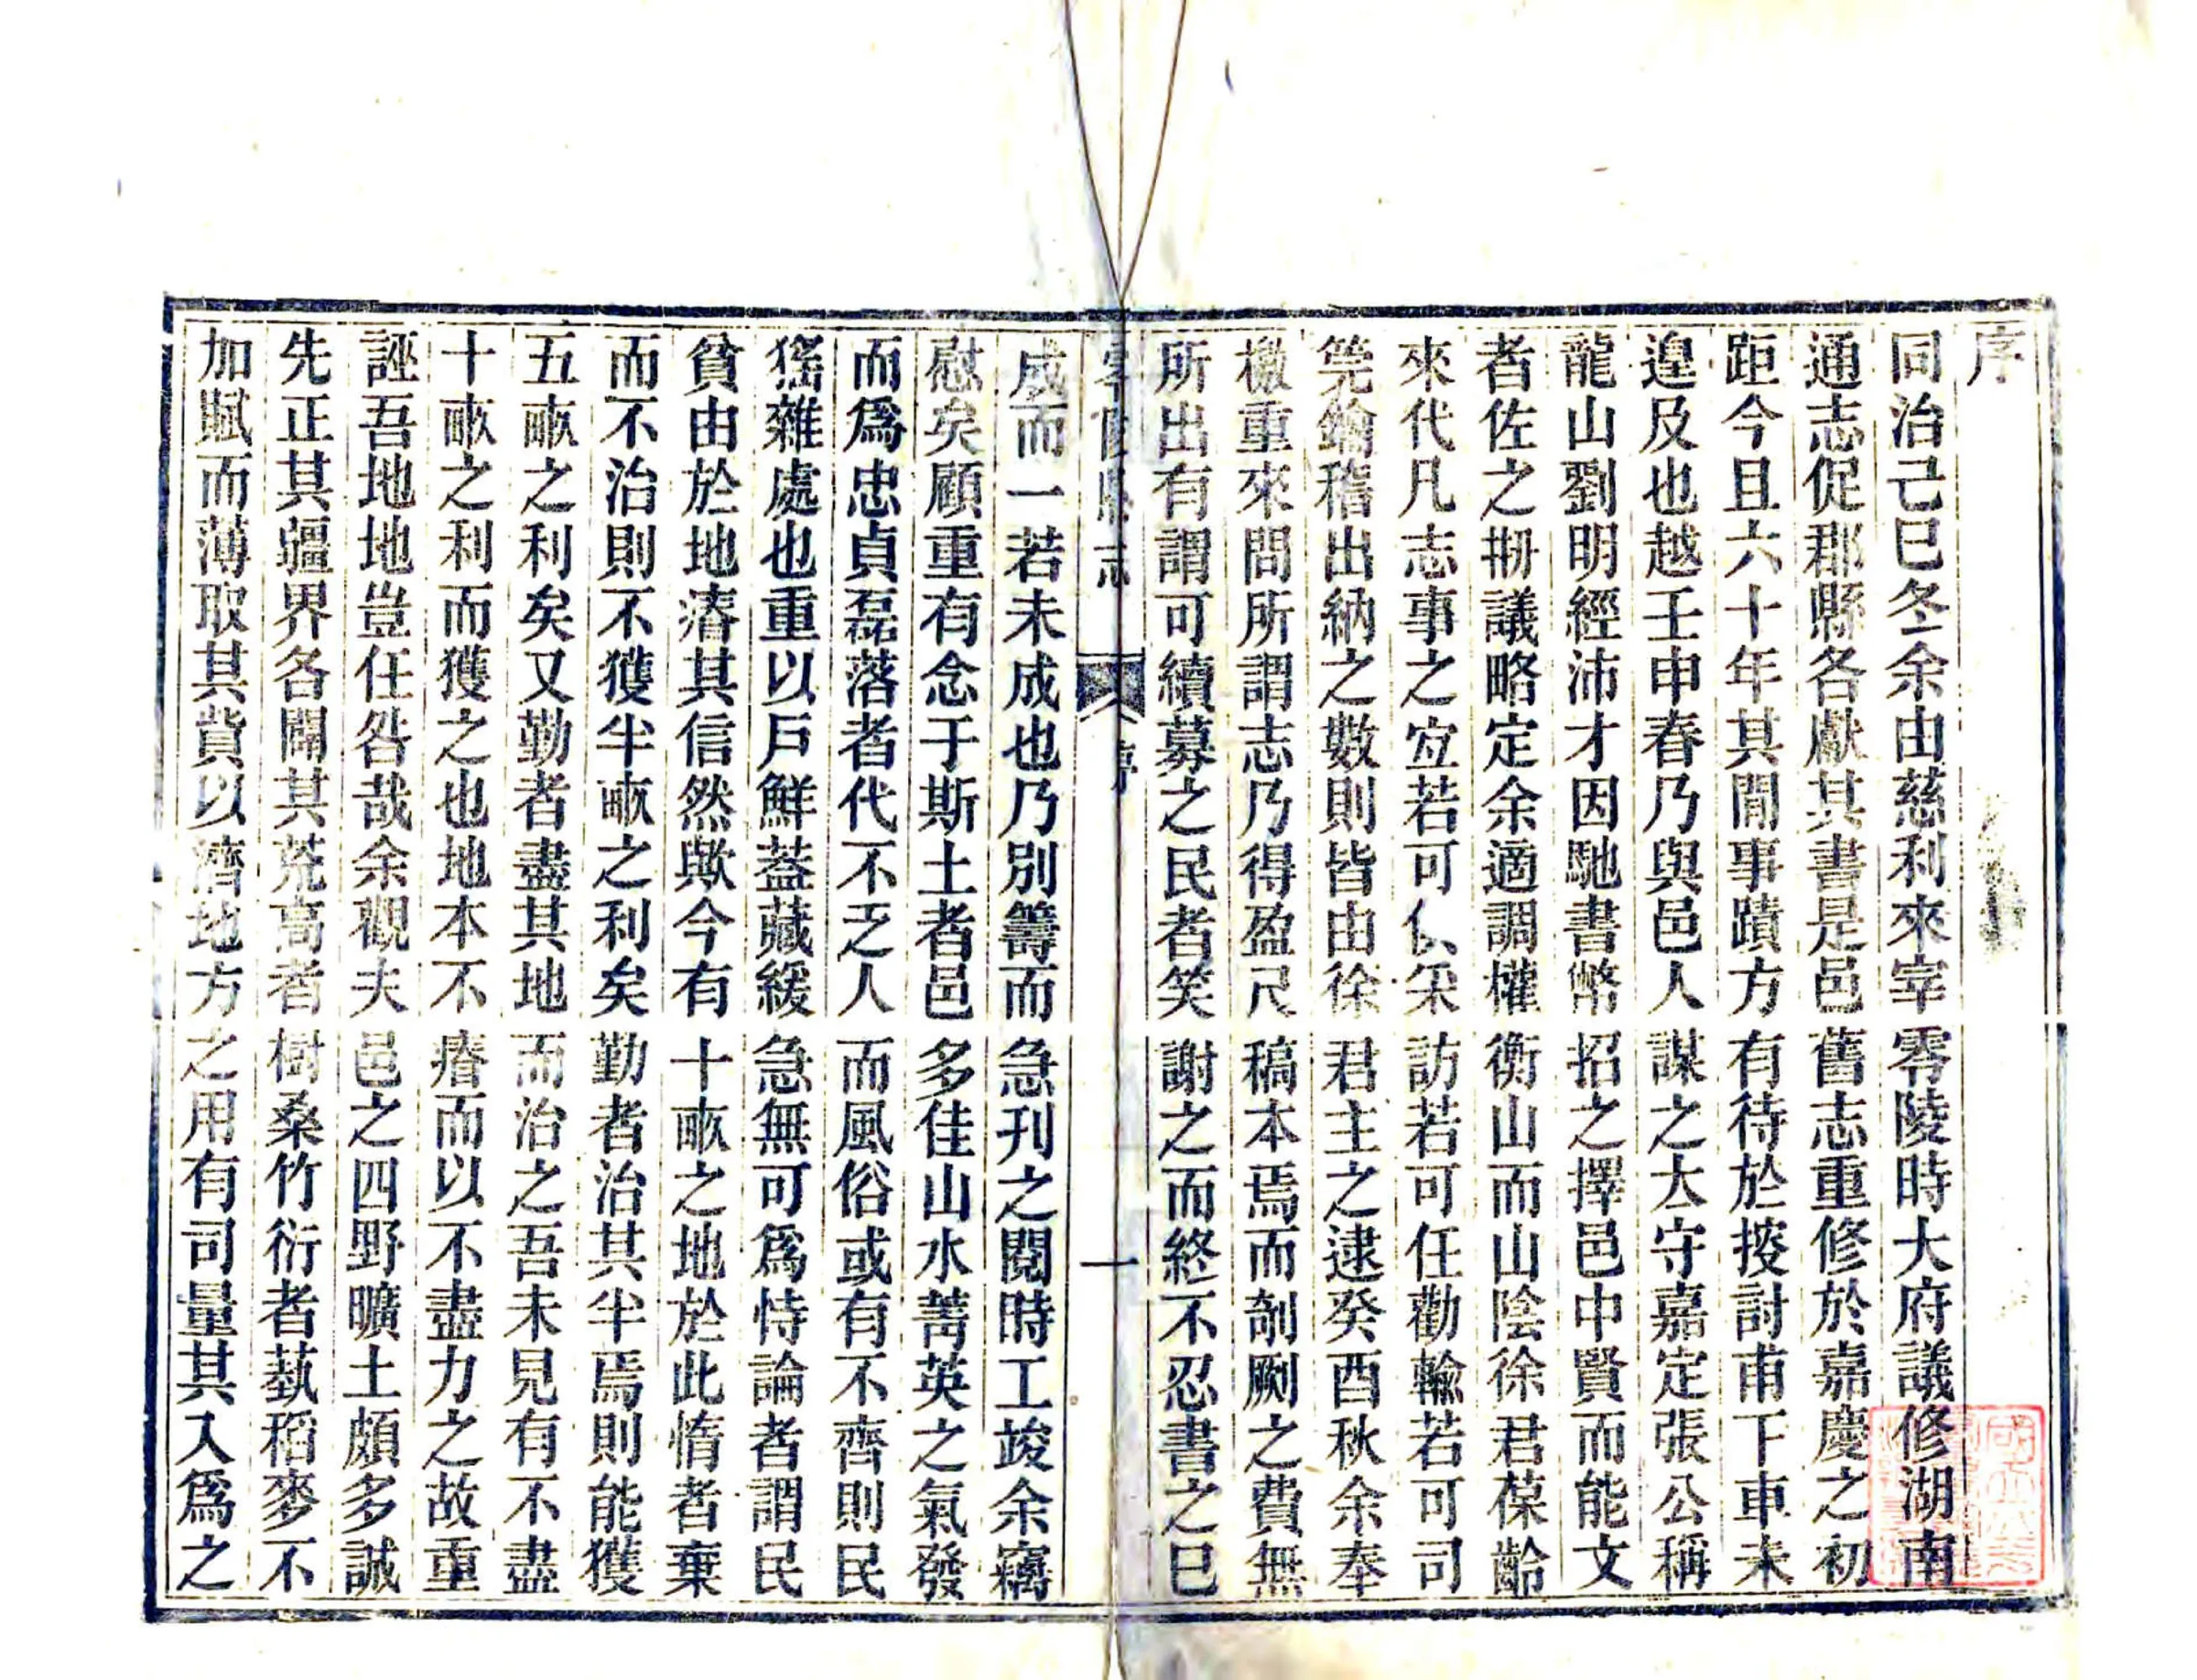 序
同治己巳冬余由慈利來宰零陵時大府議修湖南
通志促郡縣各獻其書是邑舊志重修於嘉慶之初
距今且六十年其閒事蹟方有待於搜討甫下車未
遑及也越壬申春乃與邑人謀之太守嘉定張公稱
龍山劉明經沛才因馳書幣招之擇邑中賢而能文
者佐之剏議略定余適調權衡山而山陰徐君葆齡
來代凡志事之宜若可仏采訪若可任勸輸若可司
筦鑰稽出納之數則皆由徐君主之逮癸酉秋余奉
檄重來問所謂志乃得盈尺稿本焉而剞劂之費無
所出有謂可續募之民者笑謝之而終不忍書之巳
零陵縣志 序 一
成而一若未成也乃別籌而急刋之閱時工竣余竊
慰矣顧重有念于斯土者邑多佳山水菁英之氣發
而爲忠貞磊落者代不乏人而風俗或有不齊則民
猺雜處也重以戶鮮葢藏緩急無可爲恃論者謂民
貧由於地瘠其信然歟今有十畝之地於此惰者棄
而不治則不獲半畝之利矣勤者治其半焉則能獲
五畝之利矣又勤者盡其地而治之吾未見有不盡
十畝之利而獲之也地本不瘠而以不盡力之故重
誣吾地地豈任咎哉余觀夫邑之四野曠土頗多誠
先正其疆界各闢其荒高者樹桑竹衍者蓺稻麥不
加賦而薄取其貲以濟地方之用有司量其入爲之